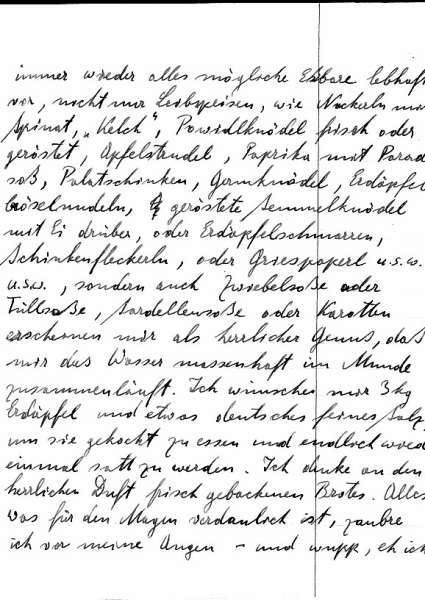 immer wieder alles mögliche Eßbare lebhaft
vor, nicht nur Leibspeisen, wie Nockerln mit
Spinat, „Kelch“, Powidlknödel frisch oder
geröstet, Apfelstrudel, Paprika mit Parad
soß, Palatschinken, Germknödel, Erdäpfel
bröselnudeln, geröstete Semmelknödel
mit Ei drüber, oder Erdäpfelschmarren,
Schinkenfleckerln, oder Griespaperl u.s.w.
u.s.w., sondern auch Zwiebelsoße oder
Dillsoße, Sardellensoße oder Karotten
erscheinen mir als herrlicher Genuß, daß
mir das Wasser massenhaft im Munde
zusammenläuft. Ich wünsche mir 3 kg
Erdäpfel und etwas deutsches feines Salz,
um sie gekocht zu essen und endlich wied
einmal satt zu werden. Ich denke an den
herrlichen Duft frisch gebackenen Brotes. Alles
was für den Magen verdaulich ist, zaubre
ich vor meine Augen – und wupp, eh ich